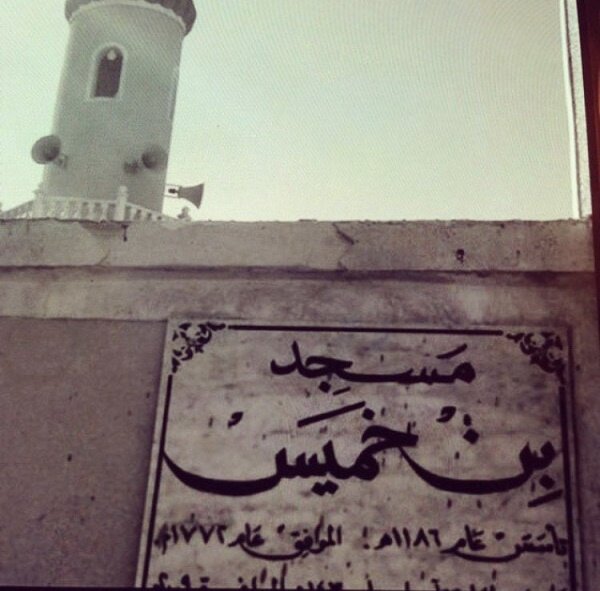 مَسجِد
بِنْ خَميسْ
تأسَسَ عَام ١١٨٦هـ الموافق عَام ١٧٧٢م